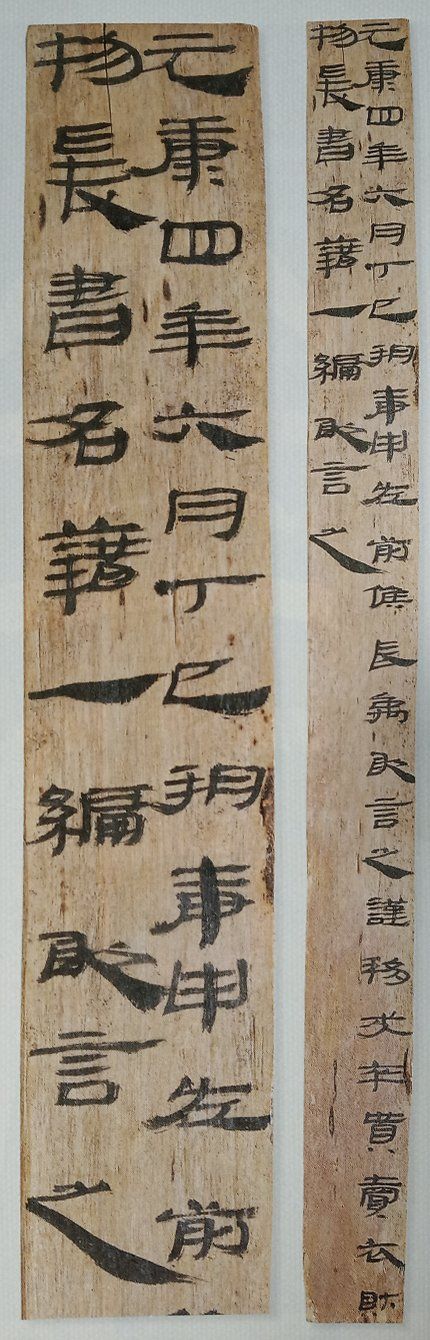 元康四年六月丁巳朔庚申左前候長禹敢言之謹移戍卒貰賣衣財
物爰書名籍一編敢言之
元康四年六月丁巳朔庚申左前
物爰書名籍一編敢言之